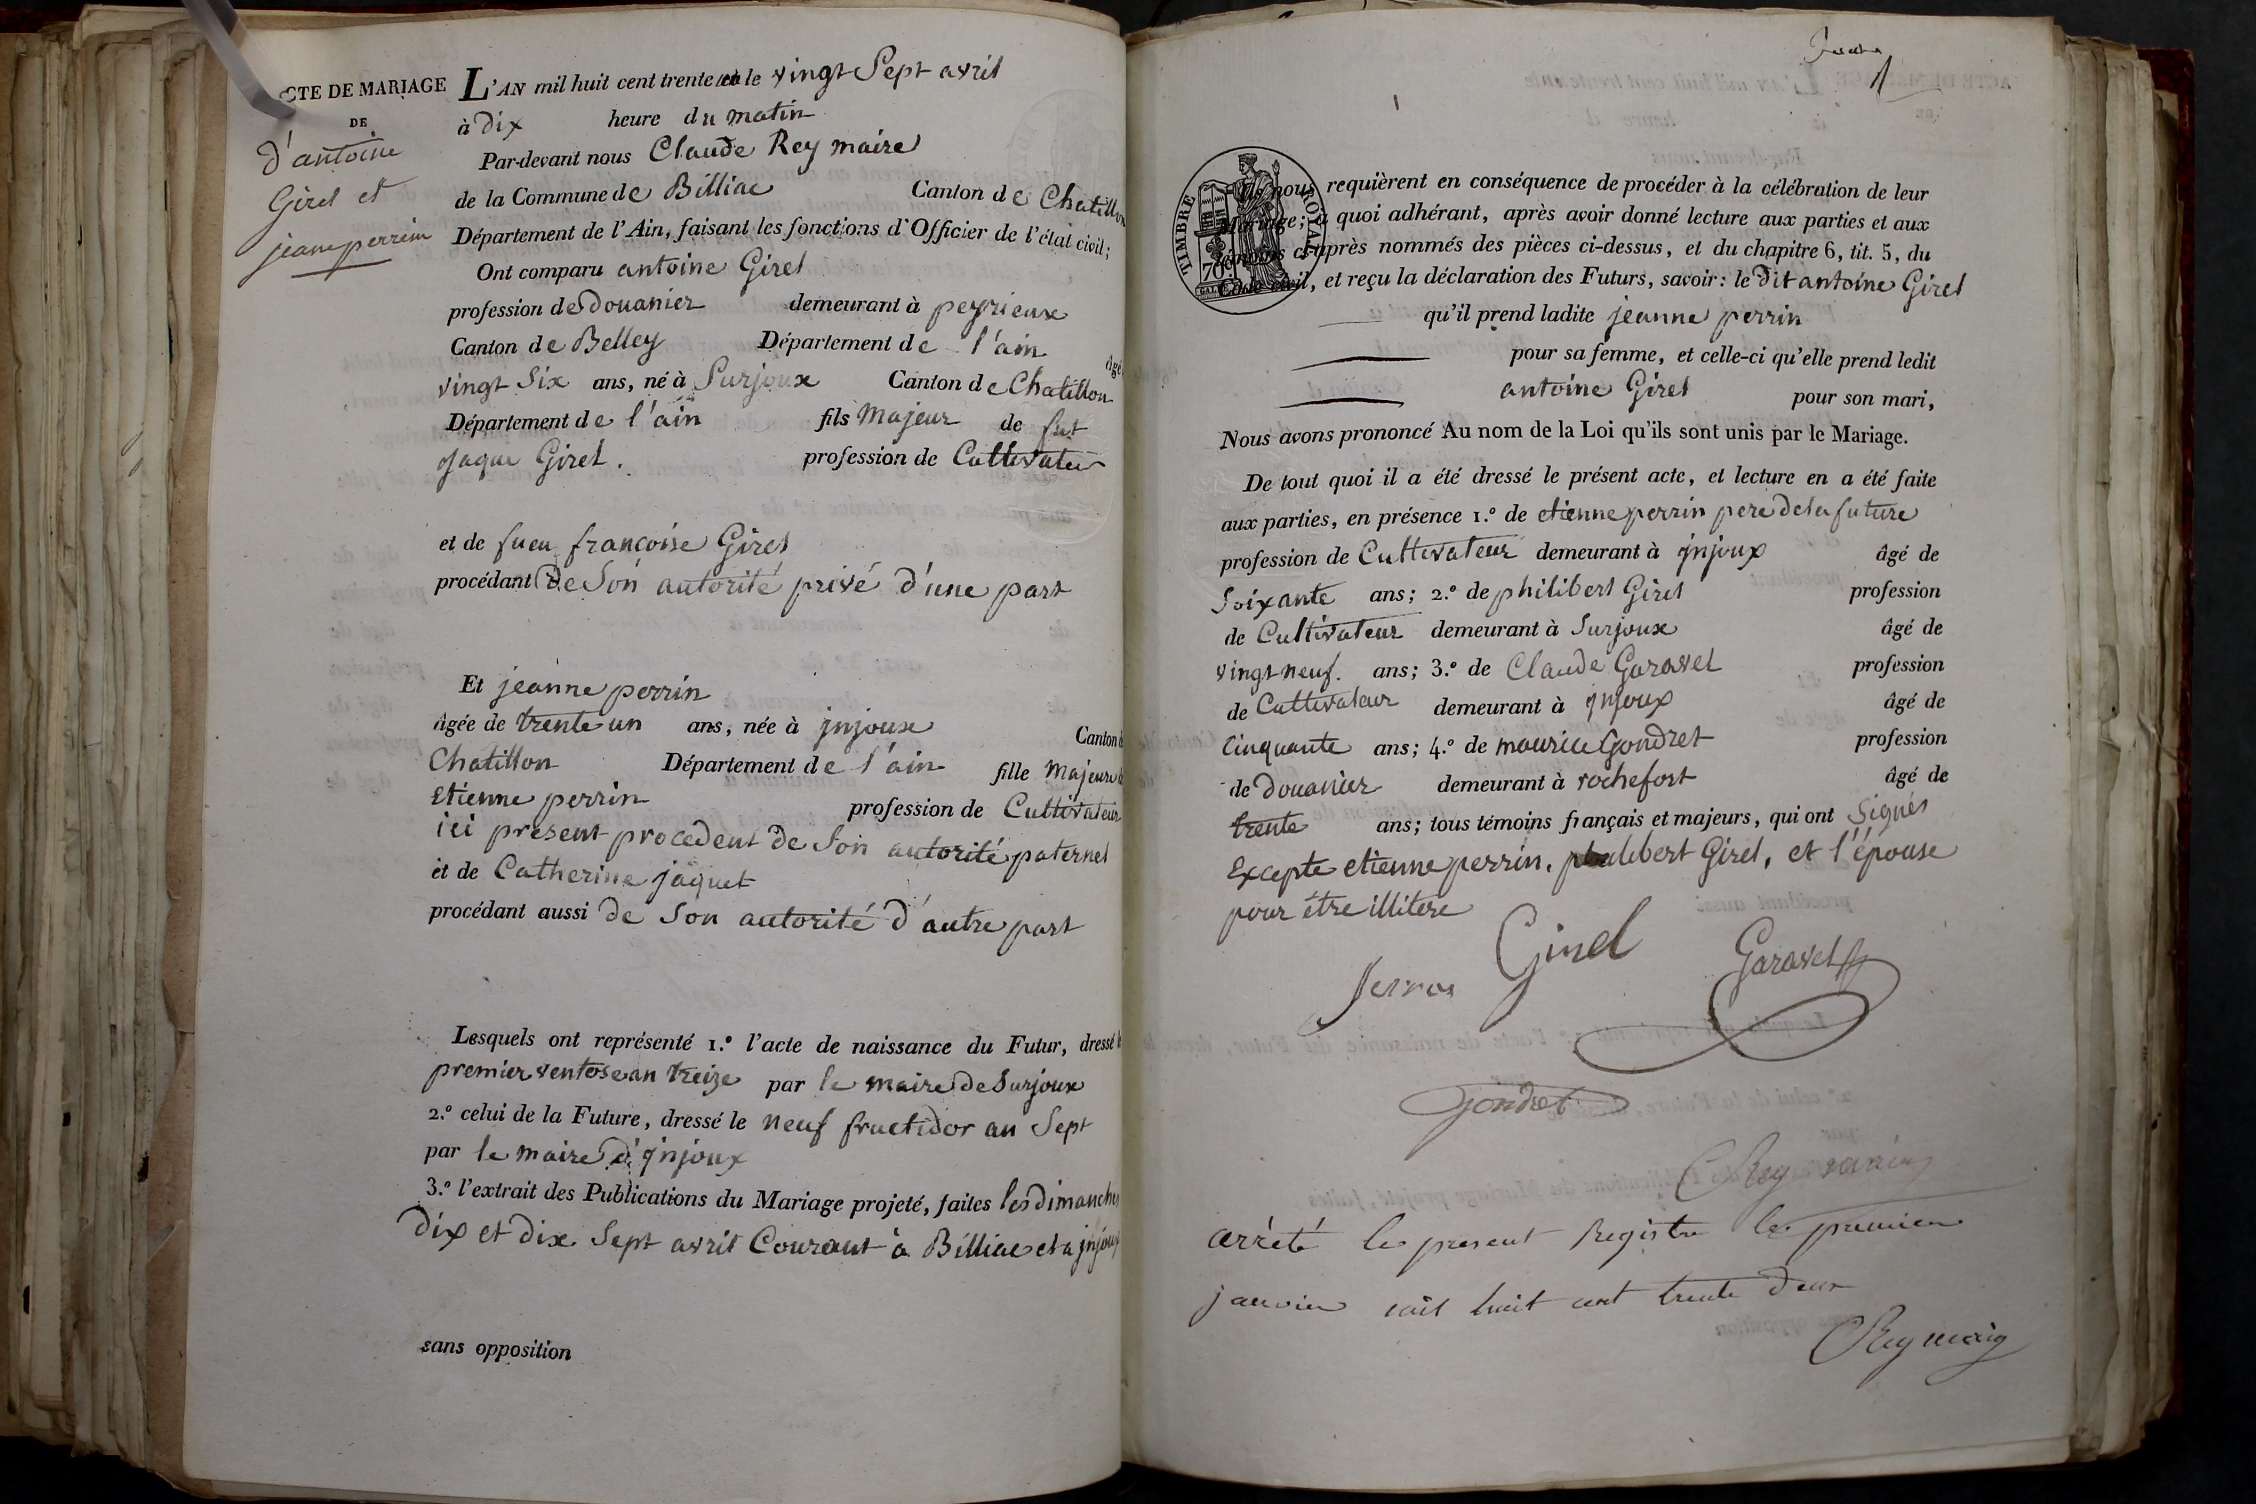 ACTE DE MARIAGE
DE
d'antoine
Girel et
jeanne perrin
L'AN mil huit cent trente un le vingt Sept avril
à Dix heure du matin
Par-devant nous Claude Rey maire
de la Commune de Billiac Canton de Chatillon
Département de l'Ain, faisant les fonctions d'Officier de l'état civil;
Ont comparu antoine Girel
profession de Douanier demeurant à peyrieux
Canton de Belley Département de l'ain âgé
vingt Six ans, né à Surjoux Canton de Chatillon
Département de l'ain fils Majeur de fut
Jaque Girel. profession de Cultivateur
et de fueu françoise Girel
procédant De Son autorité privé d'une part
Et jeanne perrin
âgée de trente un ans, née à jnjoux Canton de
Chatillon Département de l'ain fille Majeure de
Etienne perrin profession de Cultivateur
ici présent procedent de Son autorité paternel
et de Catherine jaquet
procédant aussi de Son autorité d'autre part
Lesquels ont représenté 1.º l'acte de naissance du Futur, dressé le
premier ventose an treize par le maire de Surjoux
2.º celui de la Future, dressé le neuf fructidor an Sept
par le maire d'jnjoux
3.º l'extrait des Publications du Mariage projeté, faites les dimanches
Dix et Dix Sept avril Courant à Billiac et a jnjoux
sans opposition
TIMBRE ROYAL
70
Ils nous requièrent en conséquence de procéder à la célébration de leur
Mariage; à quoi adhérant, après avoir donné lecture aux parties et aux
témoins ci-après nommés des pièces ci-dessus, et du chapitre 6, tit. 5, du
Code civil, et reçu la déclaration des Futurs, savoir: le Dit antoine Girel
qu'il prend ladite jeanne perrin
pour sa femme, et celle-ci qu'elle prend ledit
antoine Girel pour son mari,
Nous avons prononcé Au nom de la Loi qu'ils sont unis par le Mariage.
De tout quoi il a été dressé le présent acte, et lecture en a été faite
aux parties, en présence 1.º de etienne perrin pere de la future
profession de Cultivateur demeurant à jnjoux âgé de
Soixante ans; 2.º de philibert Girel profession
de Cultivateur demeurant à Surjoux âgé de
vingt neuf. ans; 3.º de Claude Garavel profession
de Cultivateur demeurant à jnjoux âgé de
Cinquante ans; 4.º de maurice Gondret profession
de Douanier demeurant à rochefort âgé de
trente ans; tous témoins français et majeurs, qui ont Signés
Excepte etienne perrin, philibert Girel, et l'épouse
pour être illitere
Girel
Garavel
Gondret
C Rey maire
arrêté le present Registre le premier
janvier mil huit cent trente deux
C Rey maire